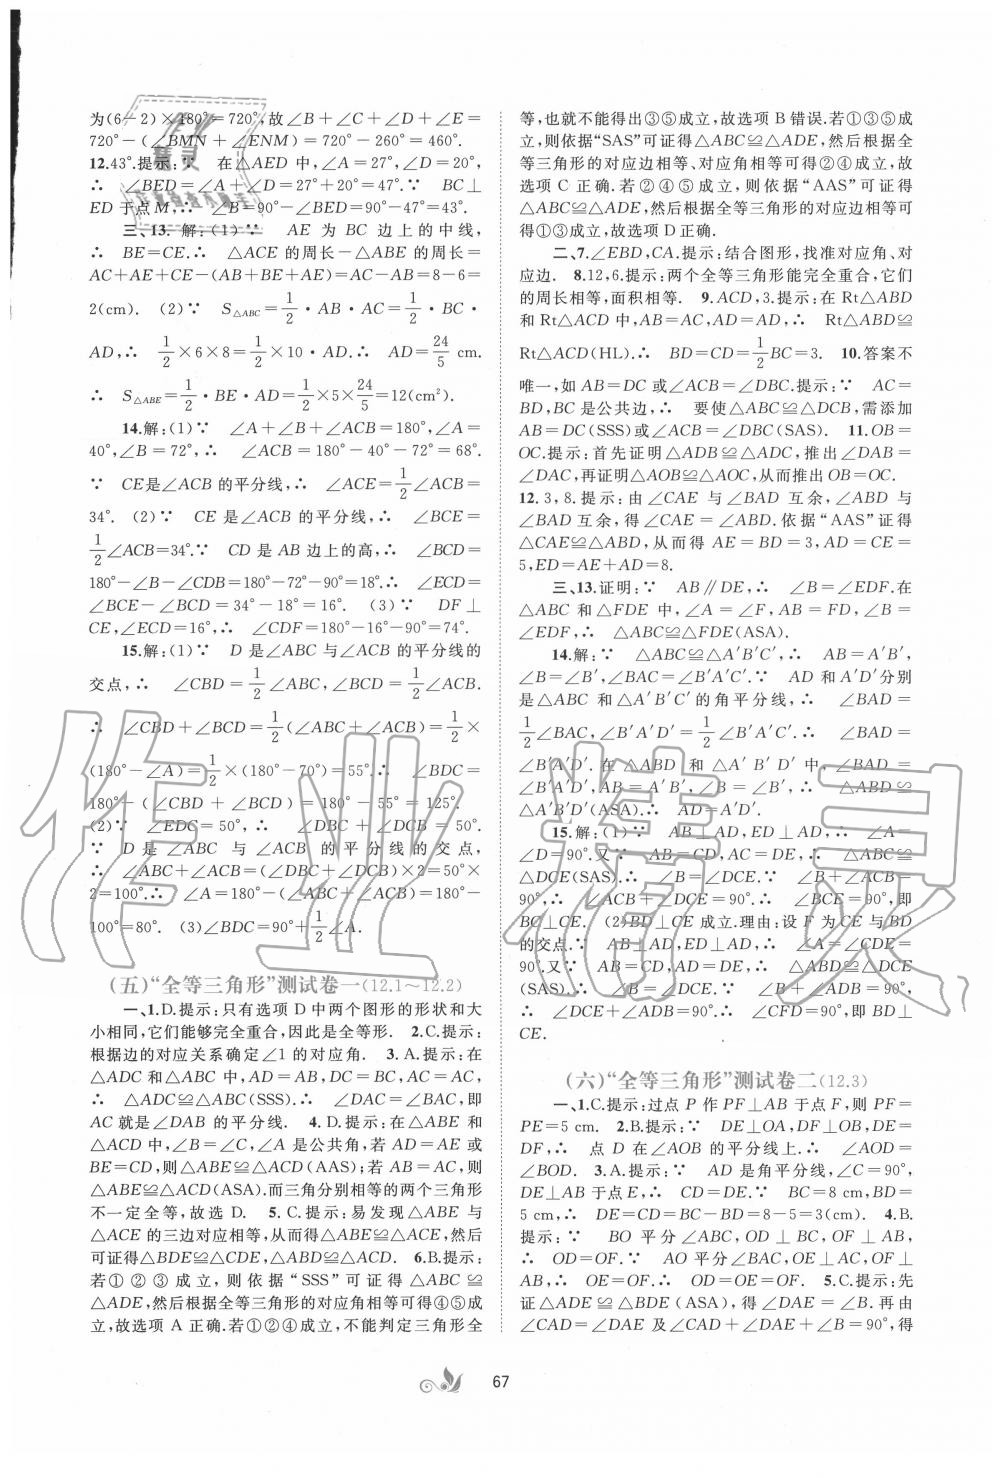 为(6－2)×180°=720°,故∠B＋∠C＋∠D＋∠E=
720°－(∠BMN＋∠ENM)=720°－260°=460°.
12.43°.提示:∵ 在△AED 中,∠A=27°,∠D=20°,
∴ ∠BED=∠A＋∠D=27°＋20°=47°.∵ BC⊥
ED于点M,∴ ∠B=90°－∠BED=90°－47°=43°.
三、13. 解:(1)∵ AE 为 BC 边上的中线,
∴ BE=CE.∴ △ACE 的周长－△ABE 的周长=
AC＋AE＋CE－(AB＋BE＋AE)=AC－AB=8－6=
2(cm). (2)∵ S△ABC=1/2·AB·AC=1/2·BC·
AD,∴ 1/2×6×8=1/2×10·AD.∴ AD=24/5 cm.
∴ S△ABE=1/2·BE·AD=1/2×5×24/5=12(cm²).
14.解:(1)∵ ∠A＋∠B＋∠ACB=180°,∠A=
40°,∠B=72°,∴ ∠ACB=180°－40°－72°=68°.
∵ CE是∠ACB 的平分线,∴ ∠ACE=1/2∠ACB=
34°. (2)∵ CE 是∠ACB 的平分线,∴ ∠BCE=
1/2∠ACB=34°.∵ CD 是 AB 边上的高,∴ ∠BCD=
180°－∠B－∠CDB=180°－72°－90°=18°.∴ ∠ECD=
∠BCE－∠BCD=34°－18°=16°. (3)∵ DF⊥
CE,∠ECD=16°,∴ ∠CDF=180°－16°－90°=74°.
15.解:(1)∵ D 是∠ABC 与∠ACB 的平分线的
交点,∴ ∠CBD=1/2∠ABC,∠BCD=1/2∠ACB.
∴ ∠CBD＋∠BCD=1/2(∠ABC＋∠ACB)=1/2×
(180°－∠A)=1/2×(180°－70°)=55°.∴ ∠BDC=
180°－(∠CBD＋∠BCD)=180°－55°=125°.
(2)∵ ∠EDC=50°,∴ ∠DBC＋∠DCB=50°.
∵ D 是∠ABC 与∠ACB 的平分线的交点,
∴ ∠ABC＋∠ACB=(∠DBC＋∠DCB)×2=50°×
2=100°.∴ ∠A=180°－(∠ABC＋∠ACB)=180°－
100°=80°. (3)∠BDC=90°＋1/2∠A.
(五)“全等三角形”测试卷一(12.1～12.2)
一、1.D.提示:只有选项 D 中两个图形的形状和大
小相同,它们能够完全重合,因此是全等形. 2.C.提示:
根据边的对应关系确定∠1 的对应角. 3.A.提示:在
△ADC 和△ABC 中,AD=AB,DC=BC,AC=AC,
∴ △ADC≌△ABC(SSS).∴ ∠DAC=∠BAC,即
AC就是∠DAB 的平分线. 4.D.提示:在△ABE 和
△ACD 中,∠B=∠C,∠A 是公共角,若 AD=AE 或
BE=CD,则△ABE≌△ACD(AAS);若 AB=AC,则
△ABE≌△ACD(ASA).而三角分别相等的两个三角形
不一定全等,故选 D. 5.C.提示:易发现△ABE 与
△ACE 的三边对应相等,从而得△ABE≌△ACE,然后
可证得△BDE≌△CDE,△ABD≌△ACD. 6.B.提示:
若①②③成立,则依据“SSS”可证得△ABC≌
△ADE,然后根据全等三角形的对应角相等可得④⑤成
立,故选项 A 正确.若①②④成立,不能判定三角形全
等,也就不能得出③⑤成立,故选项 B 错误.若①③⑤成
立,则依据“SAS”可证得△ABC≌△ADE,然后根据全
等三角形的对应边相等、对应角相等可得②④成立,故
选项 C 正确.若②④⑤成立,则依据“AAS”可证得
△ABC≌△ADE,然后根据全等三角形的对应边相等可
得①③成立,故选项D正确.
二、7.∠EBD,CA.提示:结合图形,找准对应角、对
应边. 8.12,6.提示:两个全等三角形能完全重合,它们
的周长相等,面积相等. 9.ACD,3.提示:在 Rt△ABD
和 Rt△ACD 中,AB=AC,AD=AD,∴ Rt△ABD≌
Rt△ACD(HL).∴ BD=CD=1/2BC=3. 10.答案不
唯一,如 AB=DC 或∠ACB=∠DBC.提示:∵ AC=
BD,BC 是公共边,∴ 要使△ABC≌△DCB,需添加
AB=DC(SSS)或∠ACB=∠DBC(SAS). 11.OB=
OC.提示:首先证明△ADB≌△ADC,推出∠DAB=
∠DAC,再证明△AOB≌△AOC,从而推出 OB=OC.
12.3,8.提示:由∠CAE 与∠BAD 互余,∠ABD 与
∠BAD 互余,得∠CAE=∠ABD.依据“AAS”证得
△CAE≌△ABD,从而得 AE=BD=3,AD=CE=
5,ED=AE＋AD=8.
三、13.证明:∵ AB∥DE,∴ ∠B=∠EDF.在
△ABC 和△FDE 中,∠A=∠F,AB=FD,∠B=
∠EDF,∴ △ABC≌△FDE(ASA).
14.解:∵ △ABC≌△A′B′C′,∴ AB=A′B′,
∠B=∠B′,∠BAC=∠B′A′C′.∵ AD 和A′D′分别
是△ABC 和△A′B′C′的角平分线,∴ ∠BAD=
1/2∠BAC,∠B′A′D′=1/2∠B′A′C′.∴ ∠BAD=
∠B′A′D′.在△ABD 和△A′B′D′中,∠BAD=
∠B′A′D′,AB=A′B′,∠B=∠B′,∴ △ABD≌
△A′B′D′(ASA).∴ AD=A′D′.
15.解:(1)∵ AB⊥AD,ED⊥AD,∴ ∠A=
∠D=90°.又∵ AB=CD,AC=DE,∴ △ABC≌
△DCE(SAS).∴ ∠B=∠DCE.∵ ∠B＋∠ACB=
90°,∴ ∠ACB＋∠DCE=90°.∴ ∠BCE=90°,即
BC⊥CE. (2)BD⊥CE 成立.理由:设 F 为 CE 与 BD
的交点.∵ AB⊥AD,ED⊥AD,∴ ∠A=∠CDE=
90°.又∵ AB=CD,AD=DE,∴ △ABD≌△DCE
(SAS).∴ ∠B=∠DCE.∵ ∠B＋∠ADB=90°,
∴ ∠DCE＋∠ADB=90°.∴ ∠CFD=90°,即 BD⊥
CE.
(六)“全等三角形”测试卷二(12.3)
一、1.C.提示:过点 P 作 PF⊥AB 于点 F,则 PF=
PE=5 cm. 2.B.提示:∵ DE⊥OA,DF⊥OB,DE=
DF,∴ 点 D 在∠AOB 的平分线上.∴ ∠AOD=
∠BOD. 3.A.提示:∵ AD 是角平分线,∠C=90°,
DE⊥AB 于点 E,∴ CD=DE.∵ BC=8 cm,BD=
5 cm,∴ DE=CD=BC－BD=8－5=3(cm). 4.B.
提示:∵ BO 平分∠ABC,OD⊥BC,OF⊥AB,
∴ OD=OF.∵ AO 平分∠BAC,OE⊥AC,OF⊥
AB,∴ OE=OF.∴ OD=OE=OF. 5.C.提示:先
证△ADE≌△BDE(ASA),得∠DAE=∠B.再由
∠CAD=∠DAE 及∠CAD＋∠DAE＋∠B=90°,得
67
作业精灵
精灵